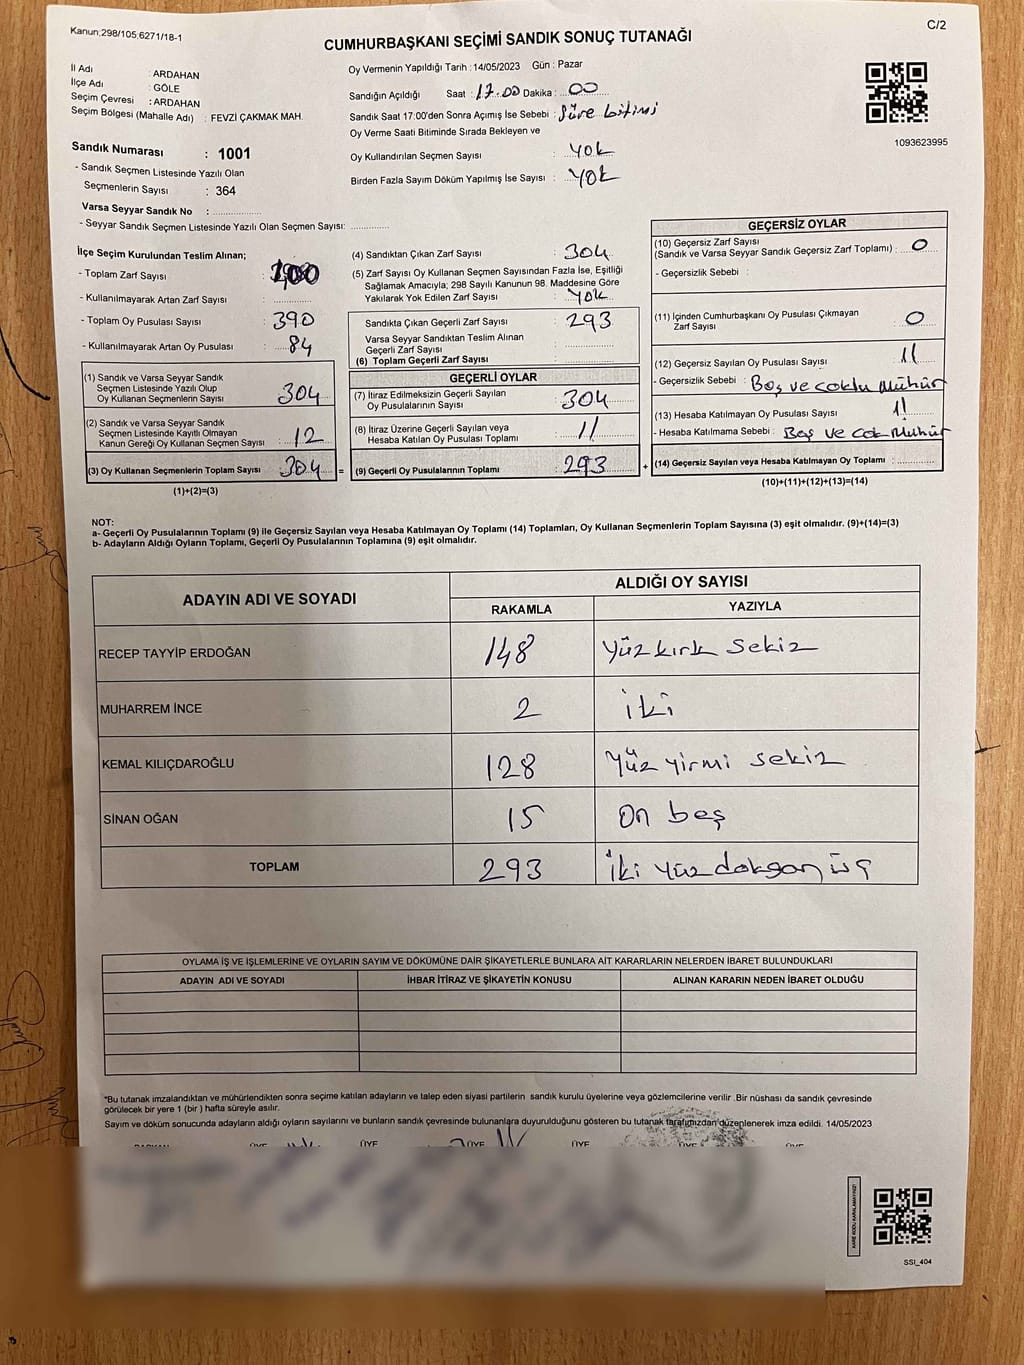 Kanun;298/105;6271/18-1
C/2
CUMHURBAŞKANI SEÇİMİ SANDIK SONUÇ TUTANAĞI
İl Adı : ARDAHAN
İlçe Adı : GÖLE
Seçim Çevresi : ARDAHAN
Seçim Bölgesi (Mahalle Adı) : FEVZİ ÇAKMAK MAH.
Sandık Numarası : 1001
- Sandık Seçmen Listesinde Yazılı Olan
Seçmenlerin Sayısı : 364
Varsa Seyyar Sandık No : ....................
- Seyyar Sandık Seçmen Listesinde Yazılı Olan Seçmen Sayısı: ..............
Oy Vermenin Yapıldığı Tarih : 14/05/2023 Gün : Pazar
Sandığın Açıldığı Saat : 17.00 Dakika : 00
Sandık Saat 17:00'den Sonra Açımış İse Sebebi : Süre bitimi
Oy Verme Saati Bitiminde Sırada Bekleyen ve
Oy Kullandırılan Seçmen Sayısı : yok
Birden Fazla Sayım Döküm Yapılmış İse Sayısı : yok
1093623995
İlçe Seçim Kurulundan Teslim Alınan;
- Toplam Zarf Sayısı :
- Kullanılmayarak Artan Zarf Sayısı : ..............
- Toplam Oy Pusulası Sayısı : 390
- Kullanılmayarak Artan Oy Pusulası : 84
(1) Sandık ve Varsa Seyyar Sandık
Seçmen Listesinde Yazılı Olup
Oy Kullanan Seçmenlerin Sayısı : 304
(2) Sandık ve Varsa Seyyar Sandık
Seçmen Listesinde Kayıtlı Olmayan
Kanun Gereği Oy Kullanan Seçmen Sayısı : 12
(3) Oy Kullanan Seçmenlerin Toplam Sayısı : 304 =
(1)+(2)=(3)
(4) Sandıktan Çıkan Zarf Sayısı : 304
(5) Zarf Sayısı Oy Kullanan Seçmen Sayısından Fazla İse, Eşitliği
Sağlamak Amacıyla; 298 Sayılı Kanunun 98. Maddesine Göre
Yakılarak Yok Edilen Zarf Sayısı : yok
Sandıkta Çıkan Geçerli Zarf Sayısı : 293
Varsa Seyyar Sandıktan Teslim Alınan
Geçerli Zarf Sayısı :
(6) Toplam Geçerli Zarf Sayısı :
GEÇERLİ OYLAR
(7) İtiraz Edilmeksizin Geçerli Sayılan
Oy Pusulalarının Sayısı : 304
(8) İtiraz Üzerine Geçerli Sayılan veya
Hesaba Katılan Oy Pusulası Toplamı : 11
(9) Geçerli Oy Pusulalarının Toplamı : 293 +
GEÇERSİZ OYLAR
(10) Geçersiz Zarf Sayısı
(Sandık ve Varsa Seyyar Sandık Geçersiz Zarf Toplamı) : 0
- Geçersizlik Sebebi :
(11) İçinden Cumhurbaşkanı Oy Pusulası Çıkmayan
Zarf Sayısı : 0
(12) Geçersiz Sayılan Oy Pusulası Sayısı : 11
- Geçersizlik Sebebi : Boş ve çoklu Mühür
(13) Hesaba Katılmayan Oy Pusulası Sayısı : 11
- Hesaba Katılmama Sebebi : Boş ve çok Mühür
(14) Geçersiz Sayılan veya Hesaba Katılmayan Oy Toplamı : ..............
(10)+(11)+(12)+(13)=(14)
NOT:
a- Geçerli Oy Pusulalarının Toplamı (9) ile Geçersiz Sayılan veya Hesaba Katılmayan Oy Toplamı (14) Toplamları, Oy Kullanan Seçmenlerin Toplam Sayısına (3) eşit olmalıdır. (9)+(14)=(3)
b- Adayların Aldığı Oyların Toplamı, Geçerli Oy Pusulalarının Toplamına (9) eşit olmalıdır.
ADAYIN ADI VE SOYADI
ALDIĞI OY SAYISI
RAKAMLA YAZIYLA
RECEP TAYYİP ERDOĞAN 148 yüz kırk sekiz
MUHARREM İNCE 2 iki
KEMAL KILIÇDAROĞLU 128 yüz yirmi sekiz
SİNAN OĞAN 15 On beş
TOPLAM 293 iki yüz doksan üç
OYLAMA İŞ VE İŞLEMLERİNE VE OYLARIN SAYIM VE DÖKÜMÜNE DAİR ŞİKAYETLERLE BUNLARA AİT KARARLARIN NELERDEN İBARET BULUNDUKLARI
ADAYIN ADI VE SOYADI İHBAR İTİRAZ VE ŞİKAYETİN KONUSU ALINAN KARARIN NEDEN İBARET OLDUĞU
*Bu tutanak imzalandıktan ve mühürlendikten sonra seçime katılan adayların ve talep eden siyasi partilerin sandık kurulu üyelerine veya gözlemcilerine verilir .Bir nüshası da sandık çevresinde
görülecek bir yere 1 (bir ) hafta süreyle asılır.
Sayım ve döküm sonucunda adayların aldığı oyların sayılarını ve bunların sandık çevresinde bulunanlara duyurulduğunu gösteren bu tutanak tarafımızdan düzenlenerek imza edildi. 14/05/2023
ÜYE ÜYE ÜYE ÜYE ÜYE ÜYE
SSI_404